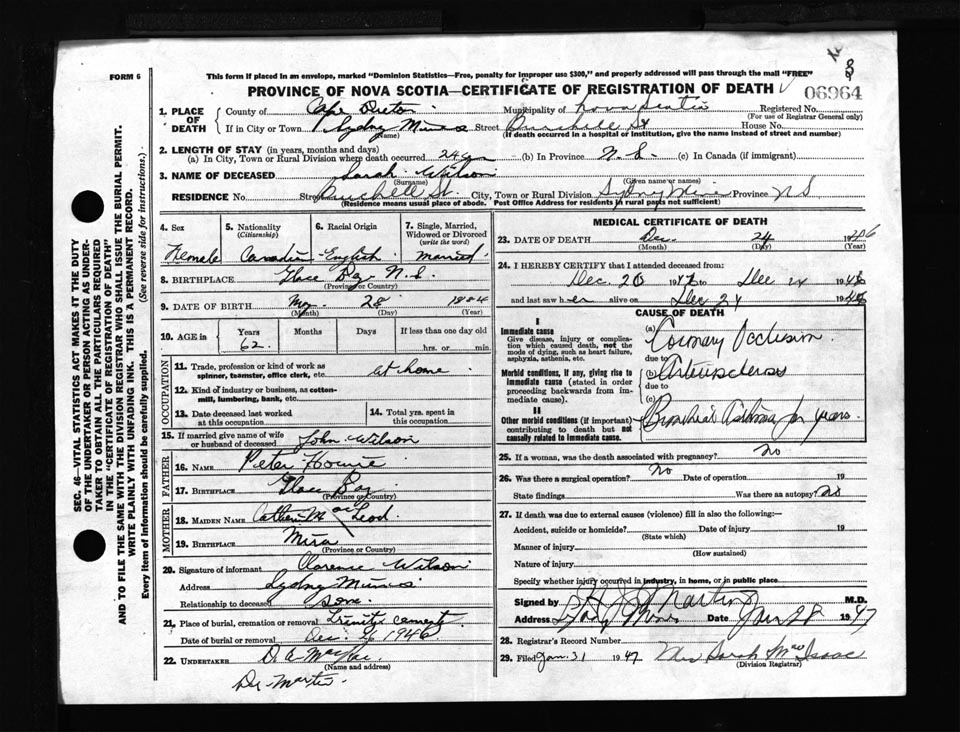 FORM 6
This form if placed in an envelope, marked "Dominion Statistics—Free, penalty for improper use $300," and properly addressed will pass through the mail "FREE"
PROVINCE OF NOVA SCOTIA—CERTIFICATE OF REGISTRATION OF DEATH
06964
1. PLACE OF DEATH
County of Cape Breton Municipality of Nova Scotia Registered No.
(For use of Registrar General only)
If in City or Town Sydney Mines Street St House No.
(Name) (If death occurred in a hospital or institution, give the name instead of street and number)
2. LENGTH OF STAY (in years, months and days)
(a) In City, Town or Rural Division where death occurred 24 (b) In Province N.S. (c) In Canada (if immigrant)
3. NAME OF DECEASED Sarah Wilson
(Surname) (Given name or names)
RESIDENCE No. Street St. City, Town or Rural Division Sydney Mines Province N S
(Residence means usual place of abode. Post Office Address for residents in rural parts not sufficient)
4. Sex Female
5. Nationality (Citizenship) Canadian
6. Racial Origin English
7. Single, Married, Widowed or Divorced (write the word) Married
8. BIRTHPLACE Glace Bay N.S.
(Province or Country)
9. DATE OF BIRTH May 28 1884
(Month) (Day) (Year)
10. AGE in Years Months Days If less than one day old
62. hrs. or min.
OCCUPATION
11. Trade, profession or kind of work as spinner, teamster, office clerk, etc. at home
12. Kind of industry or business, as cotton-mill, lumbering, bank, etc.
13. Date deceased last worked at this occupation
14. Total yrs. spent in this occupation
15. If married give name of wife or husband of deceased John Wilson
FATHER
16. NAME Peter
17. BIRTHPLACE Glace Bay
(Province or Country)
MOTHER
18. MAIDEN NAME Catherine McLeod
19. BIRTHPLACE Mira
(Province or Country)
20. Signature of informant Clarence Wilson
Address Sydney Mines
Relationship to deceased son
21. Place of burial, cremation or removal Trinity cemetery
Date of burial or removal Dec. 26 1946
22. UNDERTAKER D. A.
(Name and address)
Dr. Martin.
MEDICAL CERTIFICATE OF DEATH
23. DATE OF DEATH Dec. 24 1946
(Month) (Day) (Year)
24. I HEREBY CERTIFY that I attended deceased from:
Dec. 20 1946 to Dec 24 1946
and last saw her alive on Dec 24 1946
CAUSE OF DEATH
I
Immediate cause
Give disease, injury or complication which caused death, not the mode of dying, such as heart failure, asphyxia, asthenia, etc.
(a) Coronary Occlusion
due to
Morbid conditions, if any, giving rise to immediate cause (stated in order proceeding backwards from immediate cause).
(b) Arteriosclerosis
due to
(c)
II
Other morbid conditions (if important) contributing to death but not causally related to immediate cause.
Bronchial Asthma for years
25. If a woman, was the death associated with pregnancy? no
26. Was there a surgical operation? No Date of operation 19
State findings Was there an autopsy? no
27. If death was due to external causes (violence) fill in also the following:—
Accident, suicide or homicide? Date of injury 19
(State which)
Manner of injury
(How sustained)
Nature of injury
Specify whether injury occurred in industry, in home, or in public place
Signed by Martin M.D.
Address Sydney Mines Date Jan 28 1947
28. Registrar's Record Number
29. Filed Jan. 31 1947 Mrs Sarah MacIsaac
(Division Registrar)
SEC. 46—VITAL STATISTICS ACT MAKES IT THE DUTY
OF THE UNDERTAKER OR PERSON ACTING AS UNDER-
TAKER TO OBTAIN ALL THE PARTICULARS REQUIRED
IN THE "CERTIFICATE OF REGISTRATION OF DEATH"
AND TO FILE THE SAME WITH THE DIVISION REGISTRAR WHO SHALL ISSUE THE BURIAL PERMIT.
WRITE PLAINLY WITH UNFADING INK. THIS IS A PERMANENT RECORD.
Every item of information should be carefully supplied. (See reverse side for instructions.)